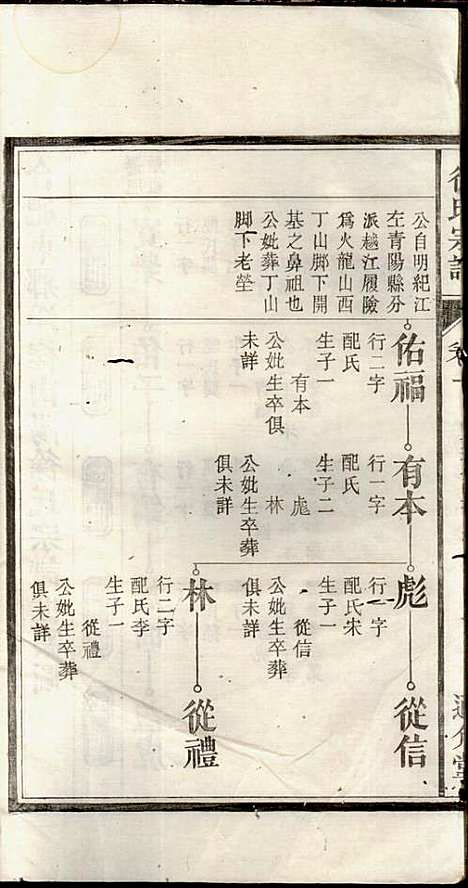 公自明紀江
在青陽縣分
派越江履險
爲火龍山西
丁山脚下開
基之鼻祖也
公妣葬丁山
脚下老塋
佑福
行二字
配氏
生子一
有本
公妣生卒俱
未詳
有本
行一字
配氏
生子二
彪
林
公妣生卒葬
俱未詳
彪
行一字
配氏宋
生子一
從信
公妣生卒葬
俱未詳
從信
林
行二字
配氏李
生子一
從禮
公妣生卒葬
俱未詳
從禮